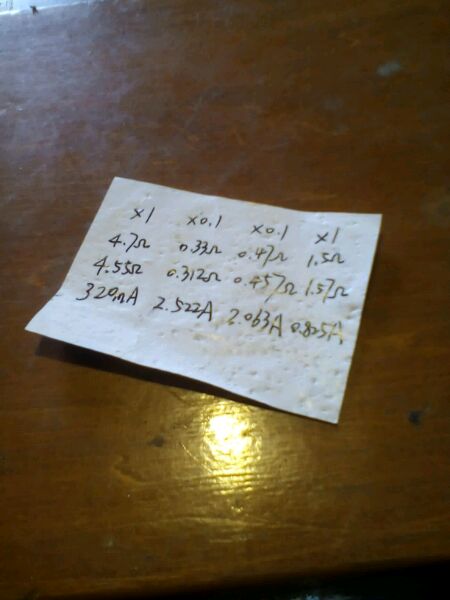 ×1 ×0.1 ×0.1 ×1
4.7Ω 0.33Ω 0.47Ω 1.5Ω
4.55Ω 0.312Ω 0.457Ω 1.57Ω
320mA 2.522A 2.063A 0.825A